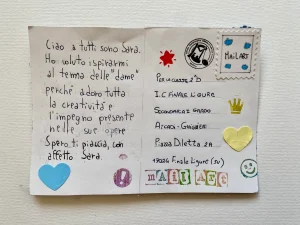 Ciao a tutti sono Sara.
Ho voluto ispirarmi
al tema delle "dame"
perché adoro tutta
la creatività e
l'impegno presente
nelle sue opere
Spero ti piaccia, con
affetto Sara.
MAIL ART
PER LA CLASSE 2ªD
I.C FINALE LIGURE
SECONDARIA I GRADO
Piazza Diletta 2A
17024 Finale Ligure (SV)
MAIL ART